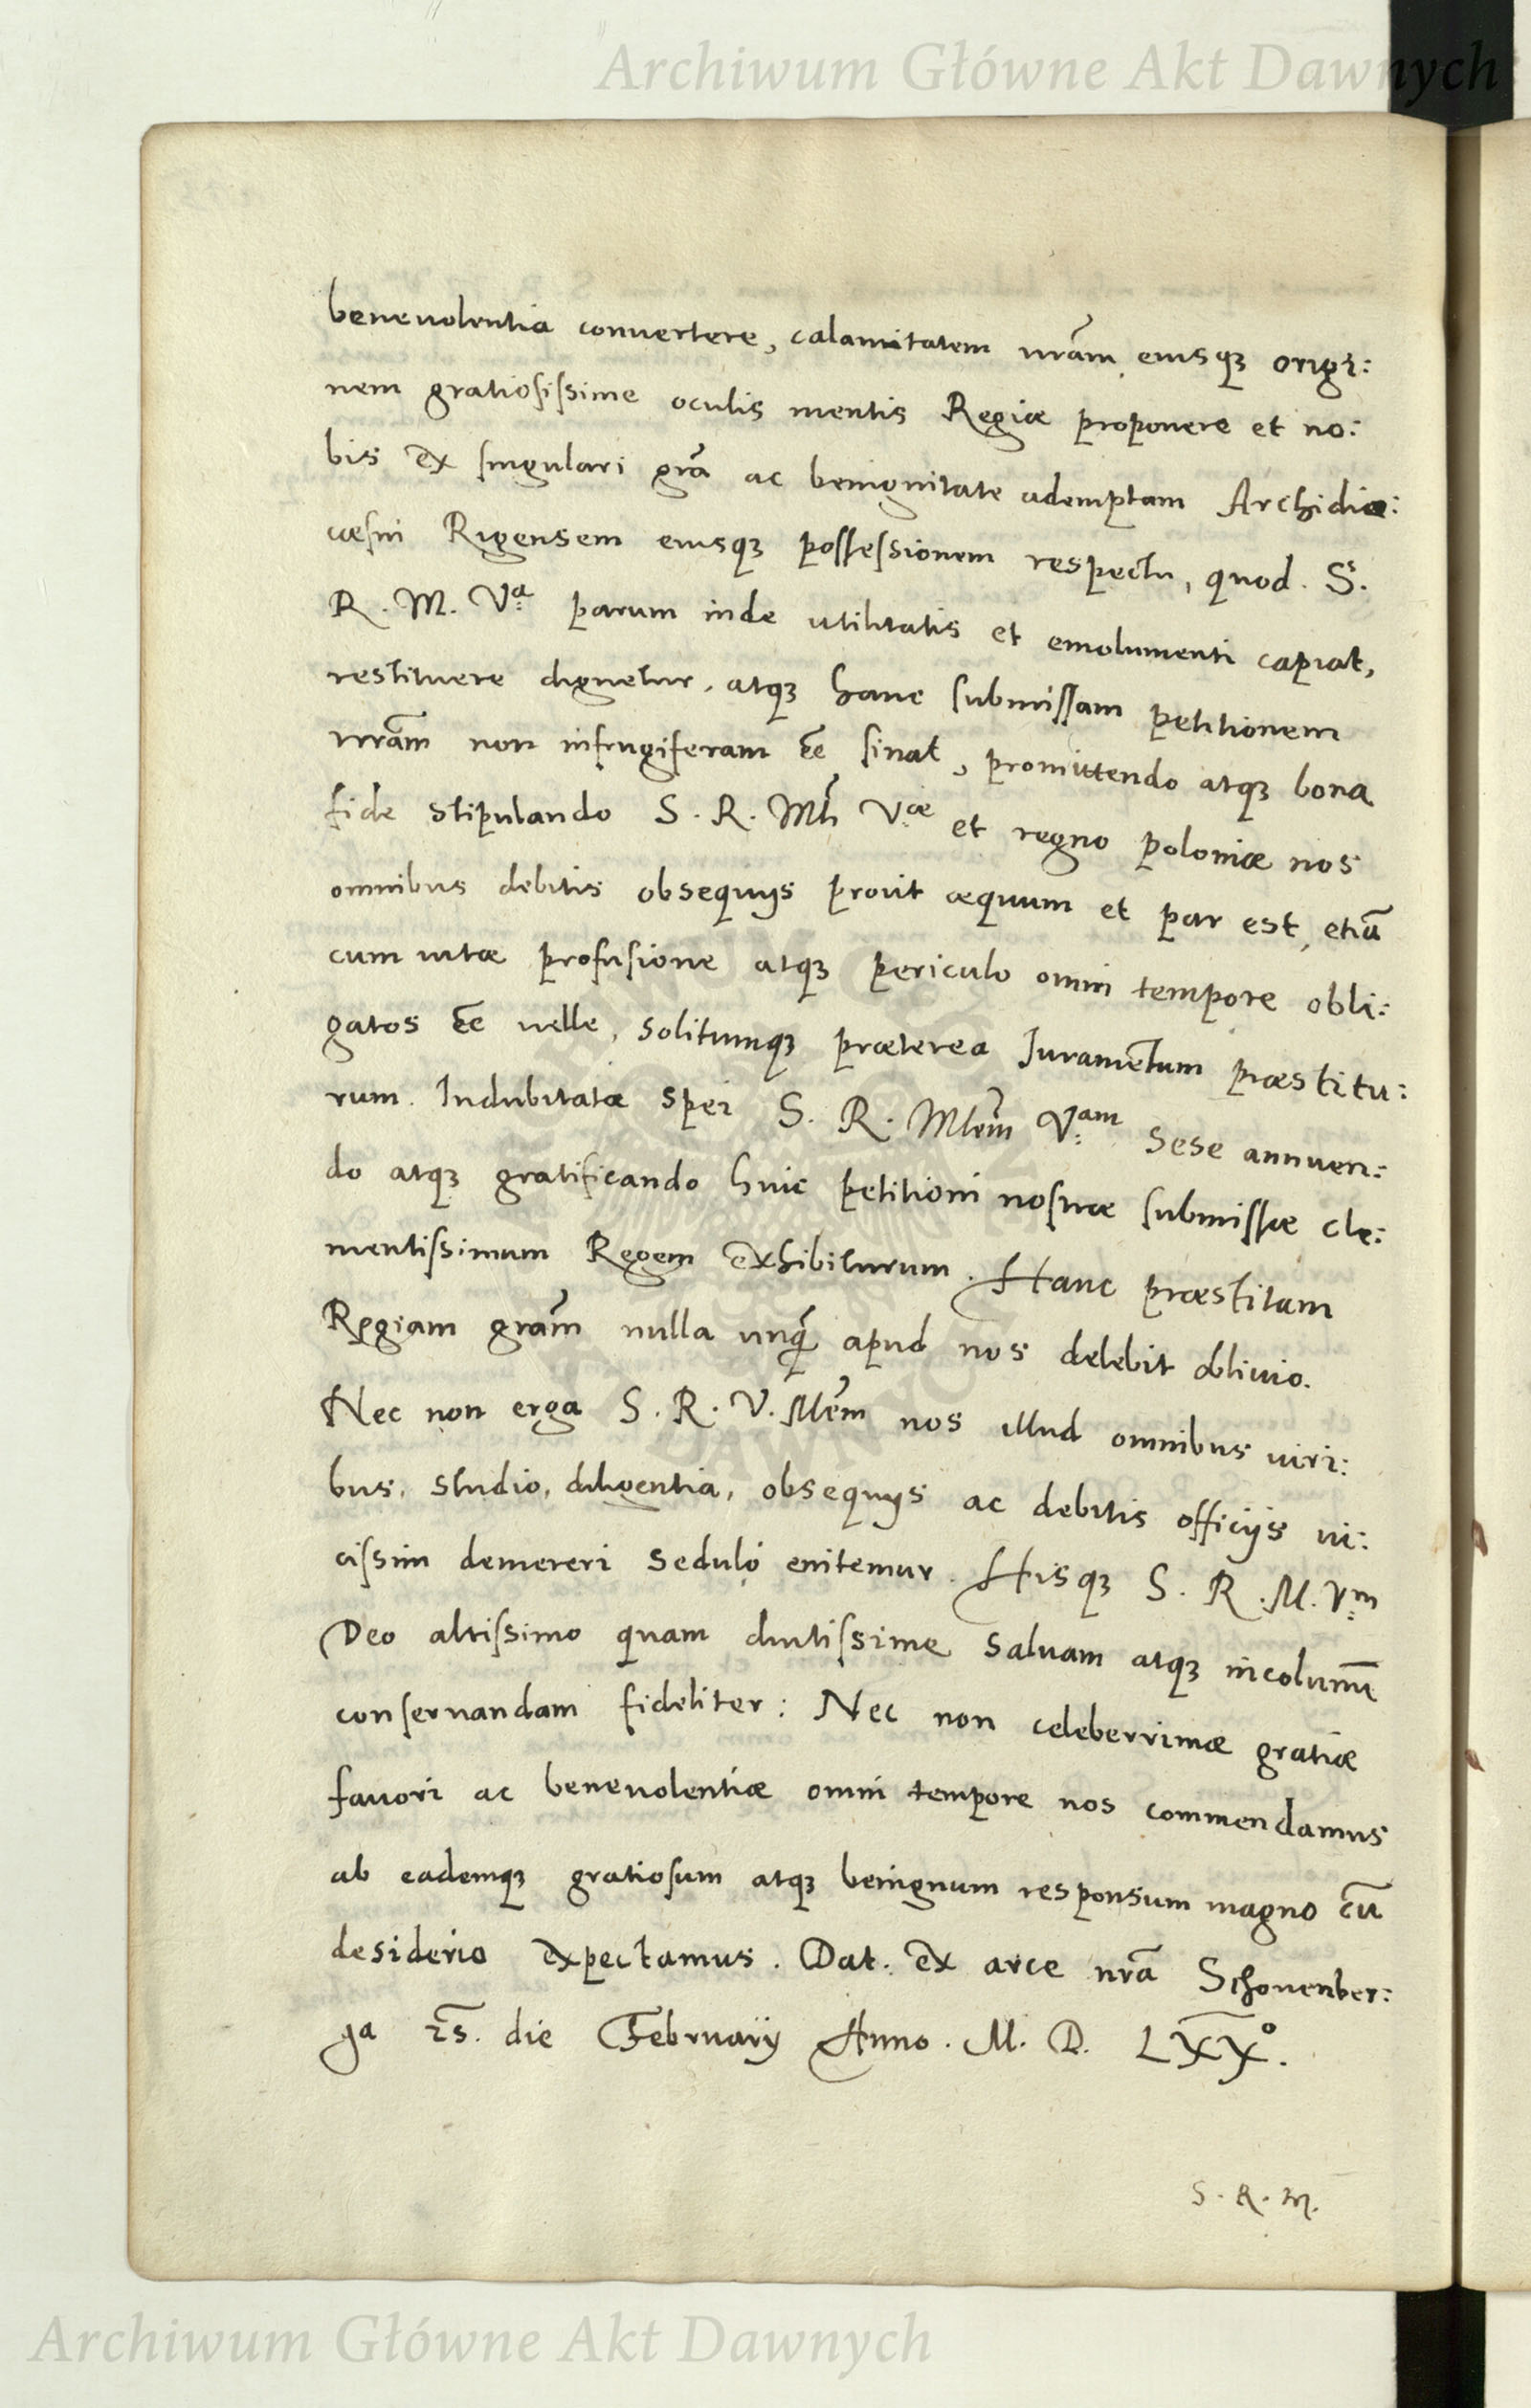 Archiwum Główne Akt Dawnych
beneuolentia conuertere, calamitatem nr̃am eiusqꝫ origi:
nem gratiosissime oculis mentis Regiæ proponere et no:
bis ex singulari gr̃a ac benignitate ademptam Archidioe:
cæsin Rigensem eiusqꝫ possessionem respectu, quod. Sˢ.
R. M. Vᵃ parum inde utilitatis et emolumenti capiat,
restituere dignetur, atqꝫ hanc submissam petitionem
nr̃am non infrugiferam ẽe sinat, promittendo atqꝫ bona
fide stipulando S. R. Mti Væ et regno poloniæ nos
omnibus debitis obsequijs prout æquum et par est, etiā
cum uitæ profusione atqꝫ periculo omni tempore obli:
gatos ẽe uelle, solitumqꝫ præterea Iuramentum præstitu:
rum. Indubitatæ spei S. R. Mtem̃ Vᵃᵐ sese annuen:
do atqꝫ gratificando huic petitioni nostræ submissæ cle:
mentissimum Regem exhibiturum. Hanc præstitam
Regiam gr̃am nulla unq̃ apud nos delebit obliuio.
Nec non erga S. R. V. Mtem̃ nos illud omnibus uiri:
bus, studio, diligentia, obsequijs ac debitis officijs ui:
cissim demereri seduló enitemur. Hisqꝫ S. R. M. Vᵐ
Deo altissimo quam diutissime saluam atqꝫ incolumē
conseruandam fideliter: Nec non celeberrimæ gratiæ
fauori ac beneuolentiæ omni tempore nos commendamus
ab eademqꝫ gratiosum atqꝫ benignum responsum magno cū
desiderio expectamus. Dat. ex arce nr̃a Schonenber:
ga 25. die Februarij Anno. M. D. LXX°.
S. R. M.
Archiwum Główne Akt Dawnych